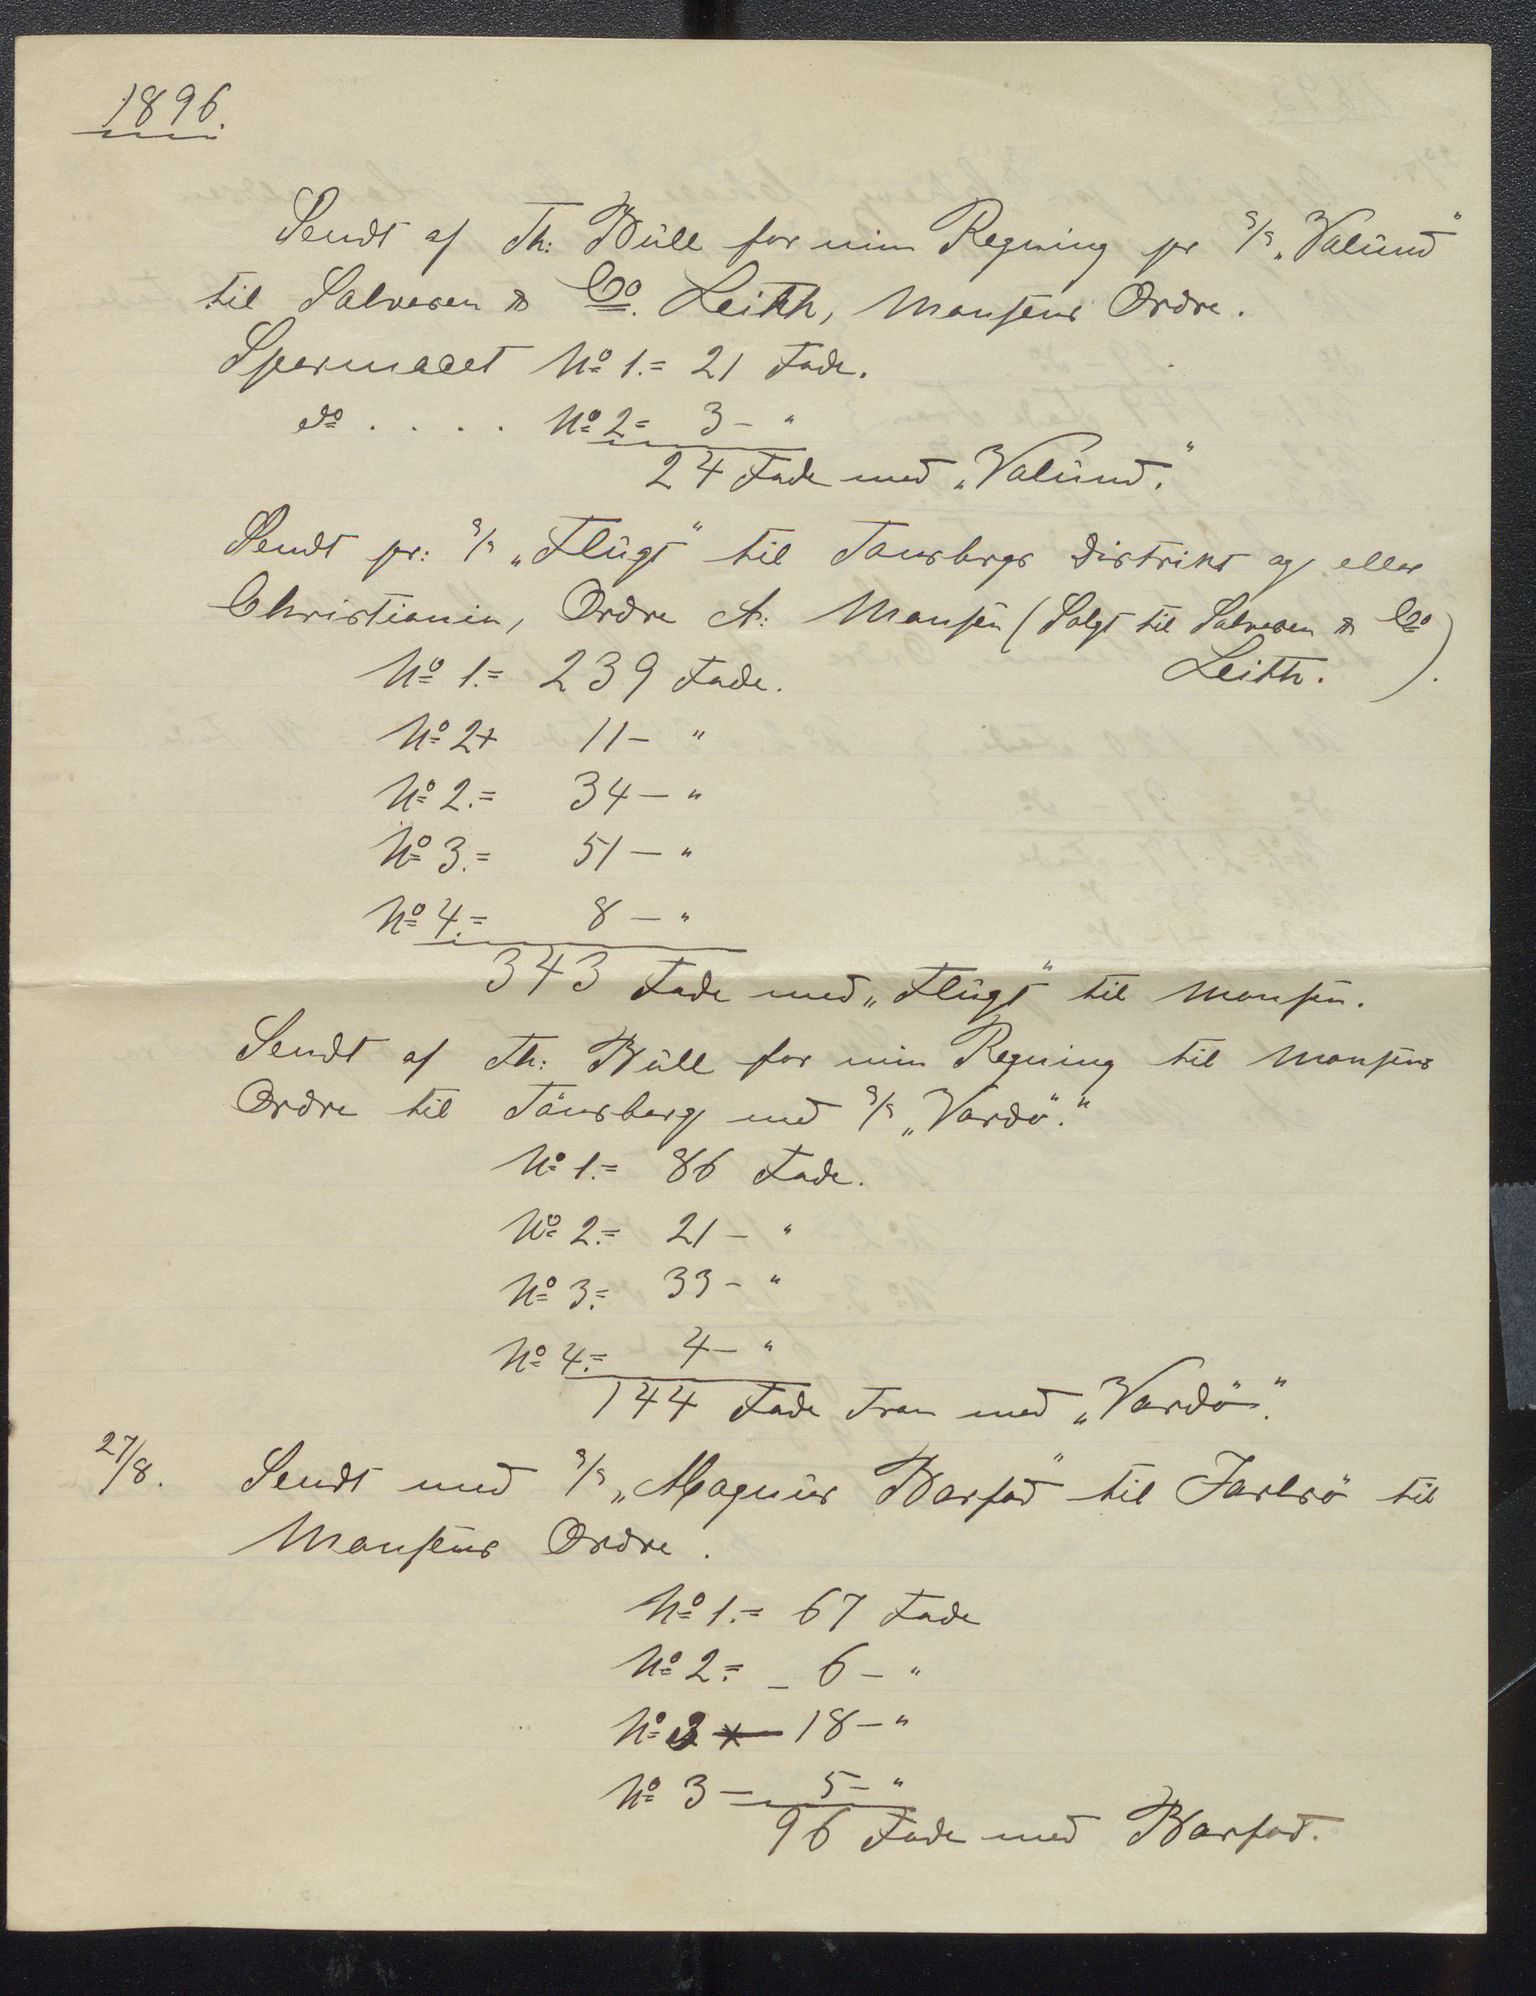 1896.
Sendt af Th: Büll for min Regning pr S/S „Valünd"
til Salvesen & Co. Leith, Monsens Ordre.
Spermacet No 1.= 21 Fade.
do . . . . No 2= 3 – "
24 Fade med „Valünd".
Sendt pr: S/S „Flügt" til Tønsbergs Distrikt og eller
Christiania, Ordre A: Monsen (Solgt til Salvesen & Co
Leith. ).
No 1.= 239 Fade.
No 2+ 11 – "
No 2.= 34 – "
No 3.= 51 – "
No 4.= 8 – "
343 Fade med „Flügt" til Monsen.
Sendt af Th: Büll for min Regning til Monsens
Ordre til Tönsberg med S/S „Vardö".
No 1.= 86 Fade.
No 2.= 21 – "
No 3.= 33 – "
No 4.= 4 – "
144 Fade Tran med „Vardö".
27/8. Sendt med S/S „Magnüs Barfod" til Jarlsö til
Monsens Ordre.
No 1.= 67 Fade
No 2.= – 6 – "
No 18 – "
No 3 – 5 – "
96 Fade med Barfod.